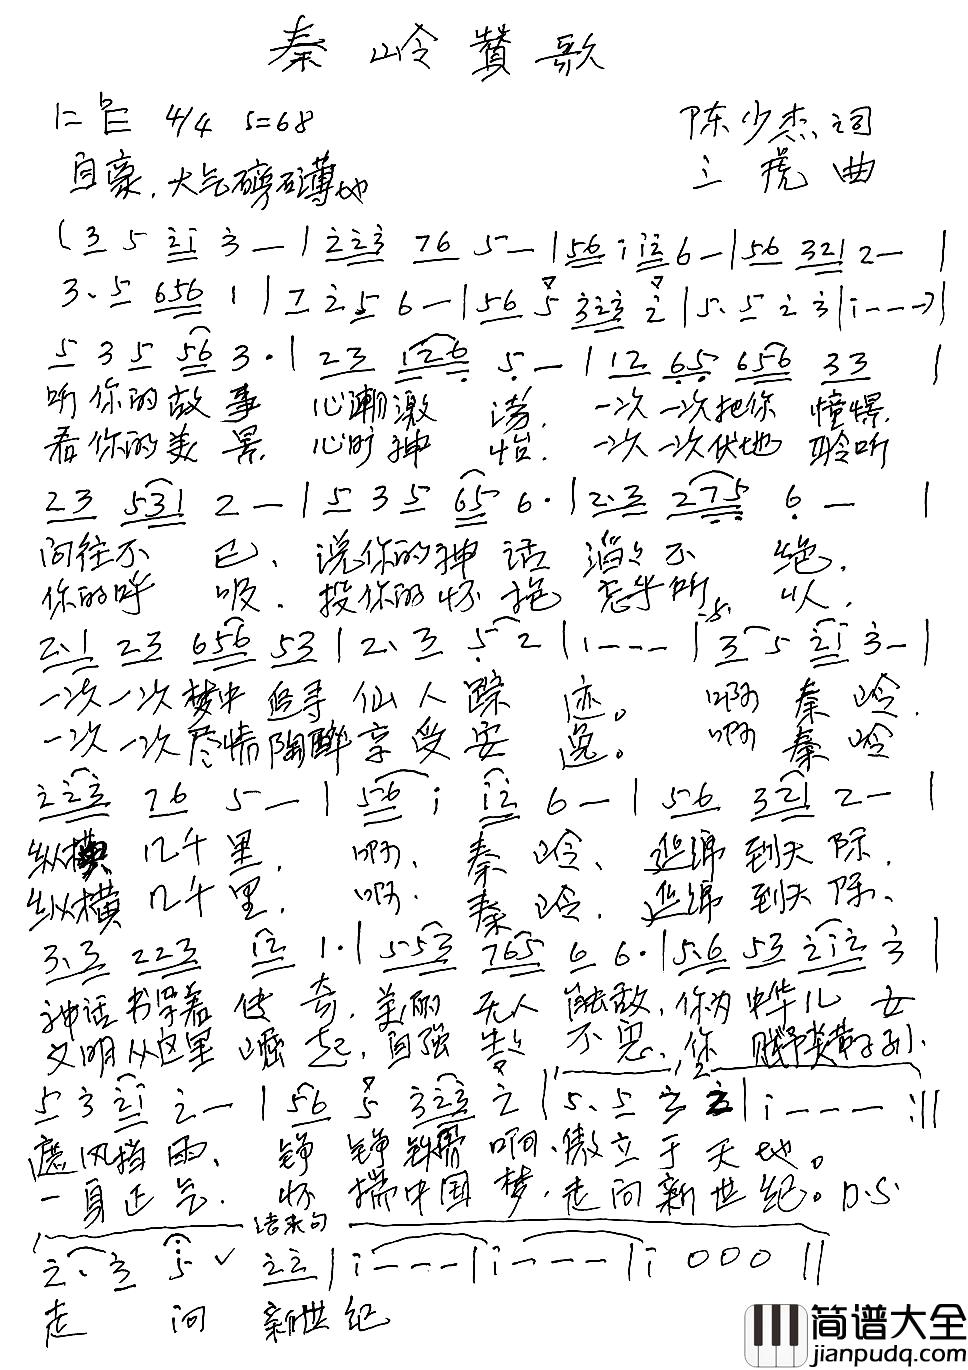 秦岭赞歌
1=ᵇE 4/4 ♩=68 陈少杰词
自豪、大气磅礴地 三虎曲
(3 5 2i 3 — | 223 76 5 — | 56 i i2 6 — | 56 321 2 — |
3. 5 656 1 | 7 2 5 6 — | 56 5 323 2 | 5. 5 2 3 | i - - -) |
5 3 5 56 3 · | 23 126 5 — | 12 65 656 33 |
听你的故事 心潮激荡. 一次一次把你 憧憬.
看你的美景. 心旷神怡. 一次一次伏地 聆听
23 531 2 — | 5 3 5 65 6 · | 2. 3 275 6 — |
向往不已、说你的神话 滔滔不绝.
你的呼吸、投你的怀抱
2. 1 23 656 53 | 2. 3 5 2 | 1 - - - | 3 5 2i 3 — |
一次一次梦中追寻仙人踪迹。啊 秦岭.
一次一次尽情陶醉享受安逸。啊 秦岭
223 76 5 — | 56 i i2 6 — | 56 321 2 — |
纵横几千里. 啊. 秦岭、延绵到天际.
纵横几千里. 啊. 秦岭. 延绵到天际、
3. 3 223 i2 1 · | 5 53 765 6 6 · | 5. 6 53 2i2 3 |
神话书写着传奇. 美丽无人能敌. 你为中华儿女
文明从这里崛起. 自强 不息. 你
5 3 2i 2 — | 56 5 323 2 | 5. 5 3 2 | i - - - :||
遮风挡雨、铮铮铁骨啊、傲立于天地。
一身正气. 怀揣中国梦. 走向新世纪。D.S.
结束句
2. 3 5 ∨ 22 | i - - - | i - - - | i 0 0 0 ||
走 向 新世纪
简谱大全
jianpudq.com